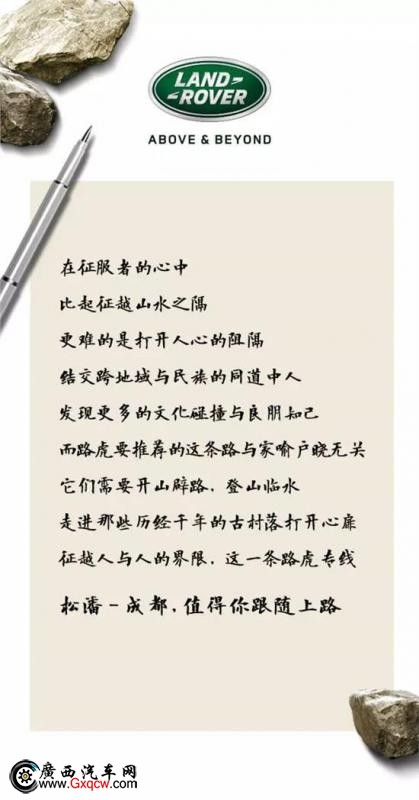 LAND
ROVER
ABOVE & BEYOND
在征服者的心中
比起征越山水之隔
更难的是打开人心的阻隔
结交跨地域与民族的同道中人
发现更多的文化碰撞与良朋知己
而路虎要推荐的这条路与家喻户晓无关
它们需要开山辟路，登山临水
走进那些历经千年的古村落打开心扉
征越人与人的界限，这一条路虎专线
松潘－成都，值得你跟随上路
廣西汽车网
www.Gxqcw.com